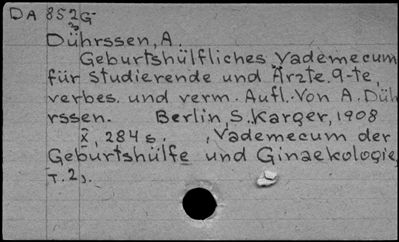 DA 852G
Dührssen, A.
Geburtshülfliches Vademecum
für Studierende und Ärzte. 9-te,
verbes. und verm. Aufl. Von A. Düh
rssen. Berlin, S. Karger, 1908
X, 284 s. , Vademecum der
Geburtshülfe und Ginaekologie,
T. 2).